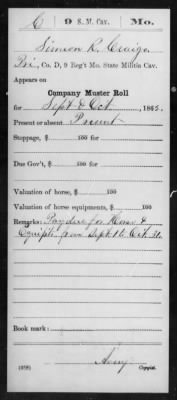 C | 9 S. M. Cav. | Mo.
Simeon R. Craig
Pri, Co. D, 9 Reg't Mo. State Militia Cav.
Appears on
Company Muster Roll
for Sept & Oct, 1862.
Present or absent Present
Stoppage, $ 100 for
Due Gov't, $ 100 for
Valuation of horse, $ 100
Valuation of horse equipments, $ 100
Remarks: Pay due for Horse &
Equipts from Sept 1 to Oct. 31.
Book mark:
(358)
Avery
Copyist.